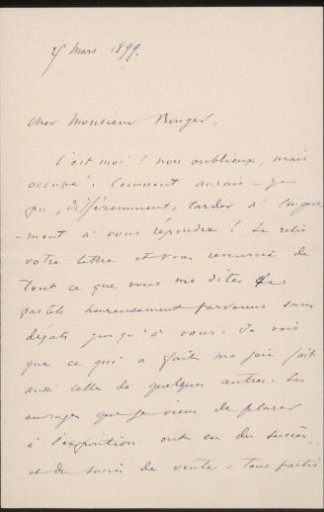 Mars 1899.
Cher Monsieur Bonger,
C'est moi ! non oublieux, mais
occupé. Comment aurais-je
pu, différemment, tarder à
-ment à vous répondre ! Je relis
votre lettre et vous remercie de
tout ce que vous me dites
pastels heureusement parvenus sans
dégats jusqu'à vous. Je vois
que ce qui a fait ma joie fait
aussi celle de quelques autres. Les
ouvrages que je viens de placer
à l'exposition ont eu du succès,
et du succès de vente : tous partis